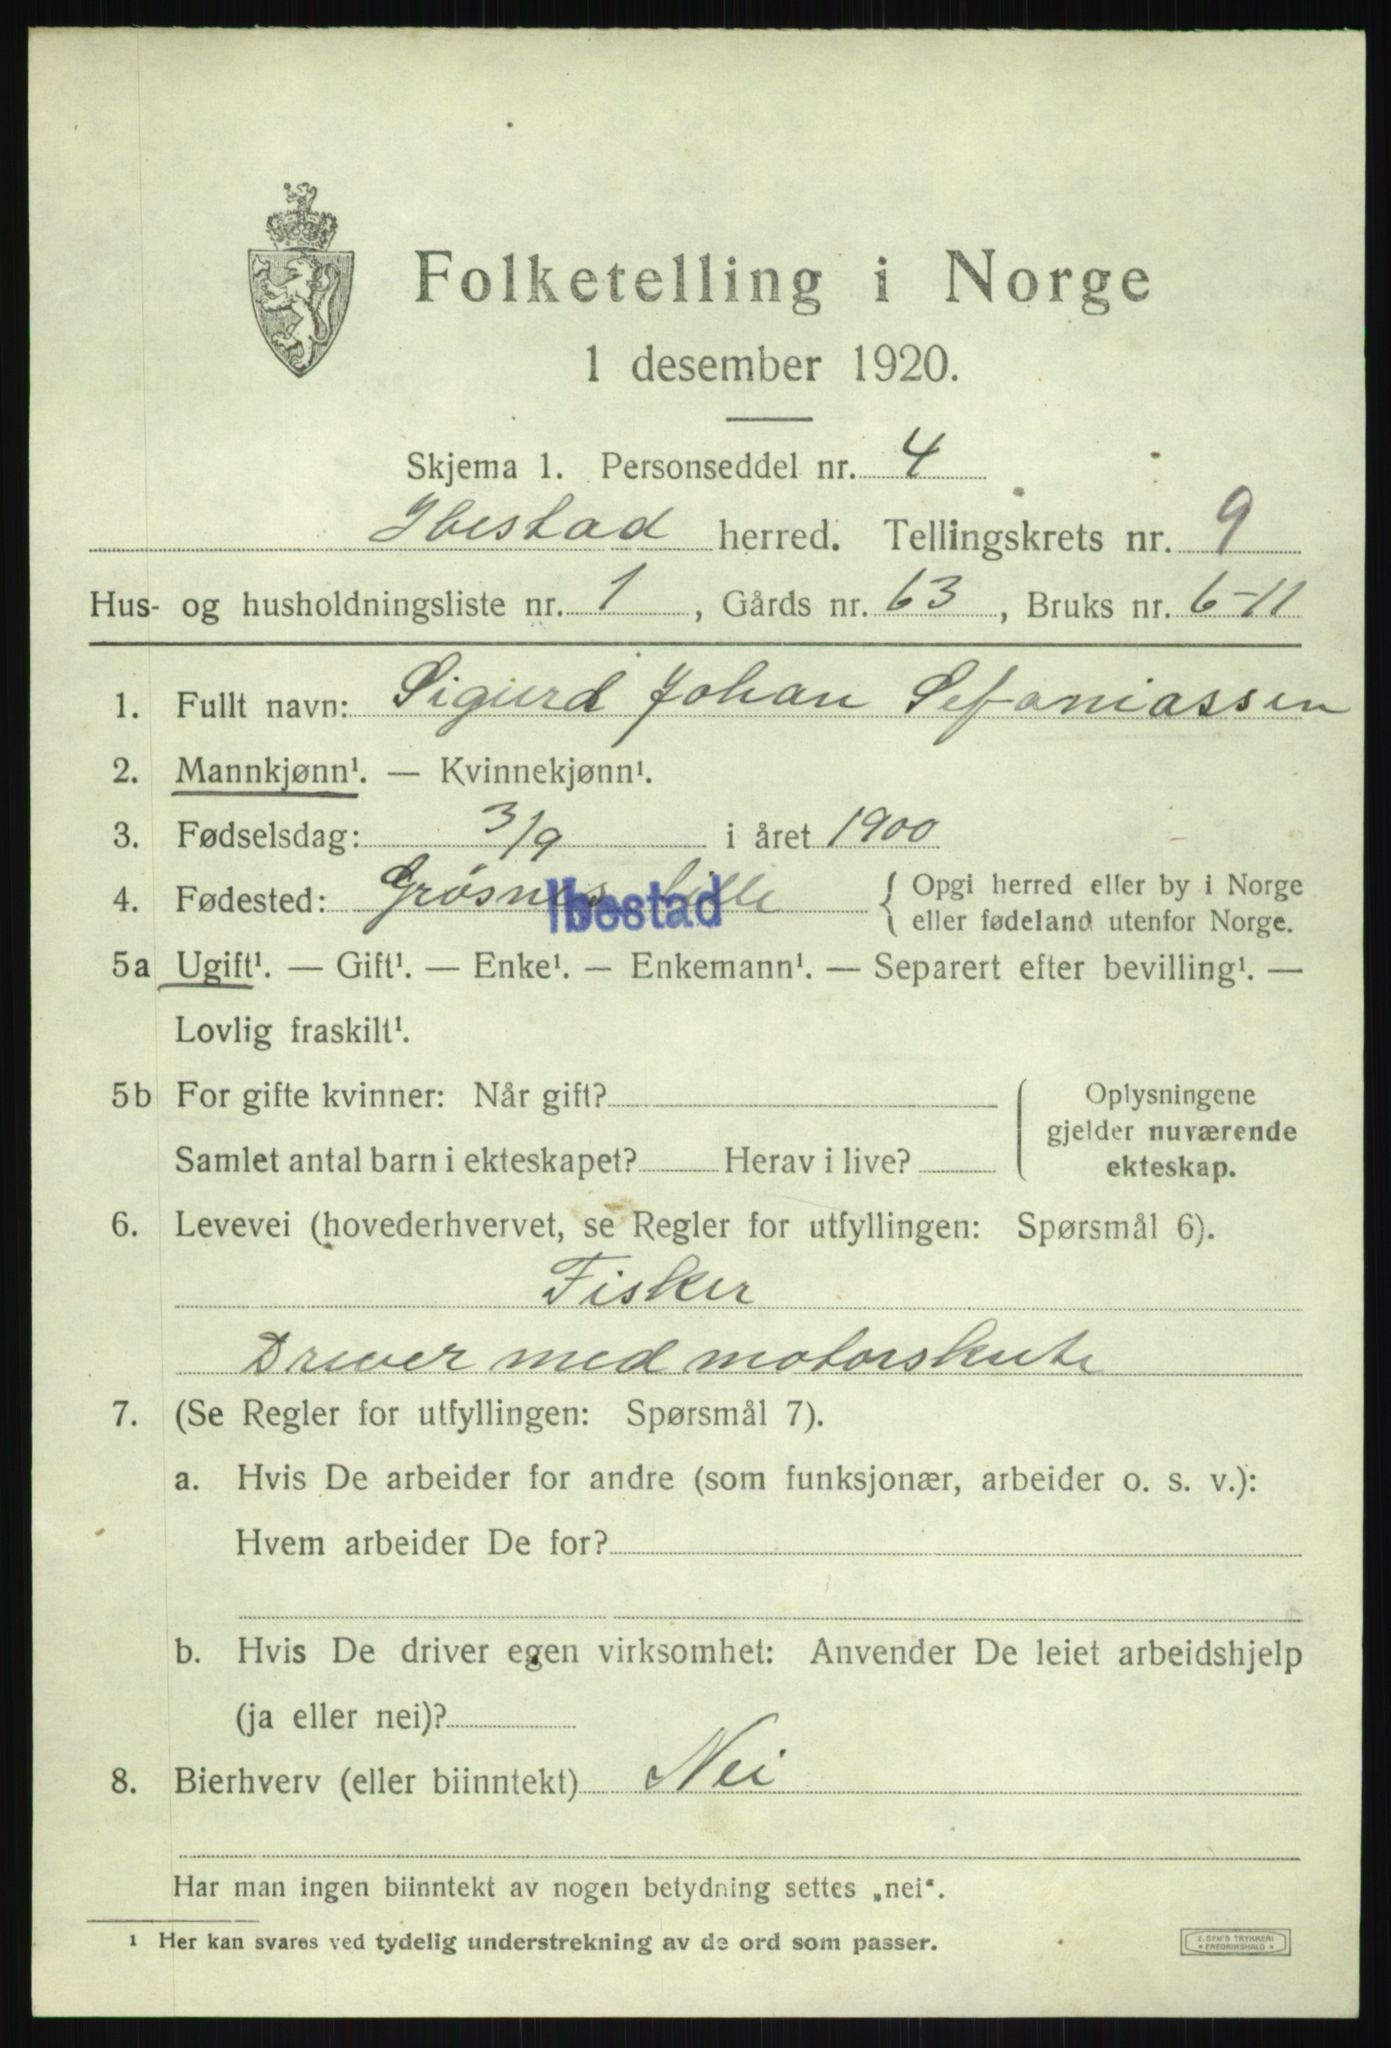 Folketelling i Norge
1 desember 1920.
Skjema 1. Personseddel nr. 4
Ibestad herred. Tellingskrets nr. 9
Hus- og husholdningsliste nr. 1, Gårds nr. 63, Bruks nr. 6-11
1. Fullt navn: Sigurd Johan Sefaniassen
2. Mannkjønn¹. — Kvinnekjønn¹.
3. Fødselsdag: 3/9 i året 1900
4. Fødested: Grøsnes lille { Opgi herred eller by i Norge
eller fødeland utenfor Norge.
Ibestad
5a Ugift¹. — Gift¹. — Enke¹. — Enkemann¹. — Separert efter bevilling¹. —
Lovlig fraskilt¹.
5b For gifte kvinner: Når gift?
Samlet antal barn i ekteskapet? Herav i live?
Oplysningene
gjelder nuværende
ekteskap.
6. Levevei (hovederhvervet, se Regler for utfyllingen: Spørsmål 6).
Fisker
Driver med motorskute
7. (Se Regler for utfyllingen: Spørsmål 7).
a. Hvis De arbeider for andre (som funksjonær, arbeider o. s. v.):
Hvem arbeider De for?
b. Hvis De driver egen virksomhet: Anvender De leiet arbeidshjelp
(ja eller nei)?
8. Bierhverv (eller biinntekt) Nei
Har man ingen biinntekt av nogen betydning settes „nei“.
¹ Her kan svares ved tydelig understrekning av de ord som passer.
E. SEM'S TRYKKERI
* FREDRIKSHALD *